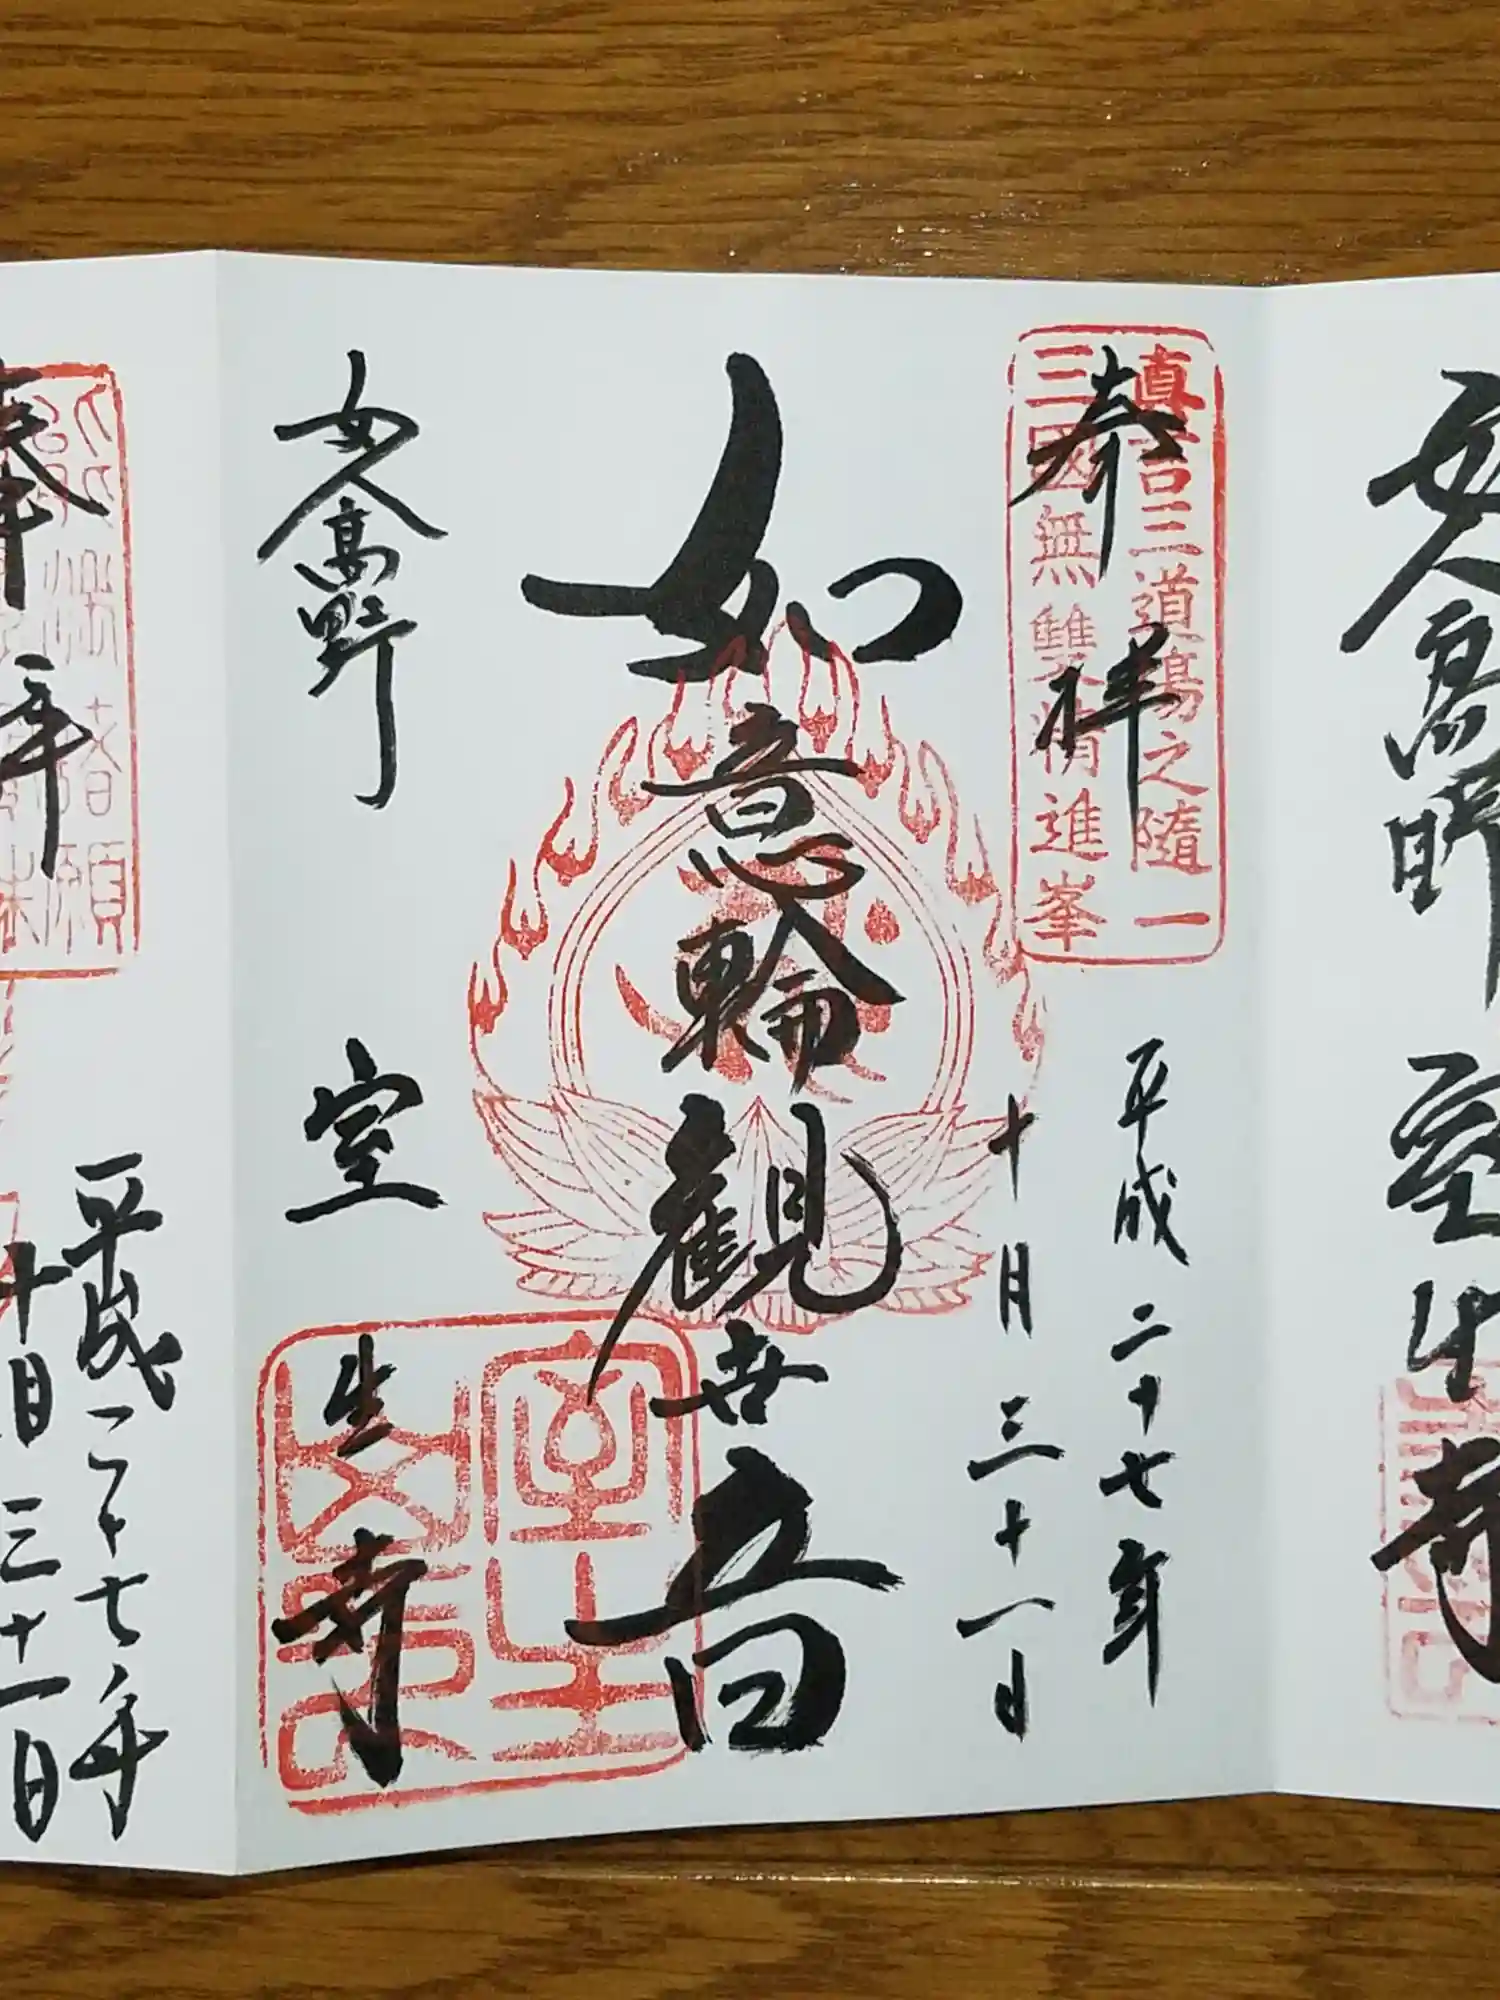 女人高野 室生寺
真言三道場之随一
三國無雙精進峯
奉拝
平成二十七年
十月三十一日
如意輪観世音
女人高野
室生寺
奉拝
平成二十七年
十月三十一日